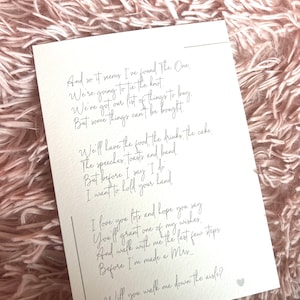 And so it seems I've found The One,
We're going to tie the knot
We've got our list of things to buy,
But some things can't be bought.
We'll have the food the drinks the cake,
The speeches toasts and band
But before I say I do
I want to hold your hand
I love you lots and hope you say
You'll grant one of my wishes
And walk with me the last few steps
Before I'm made a Mrs...
Will you walk me down the aisle?